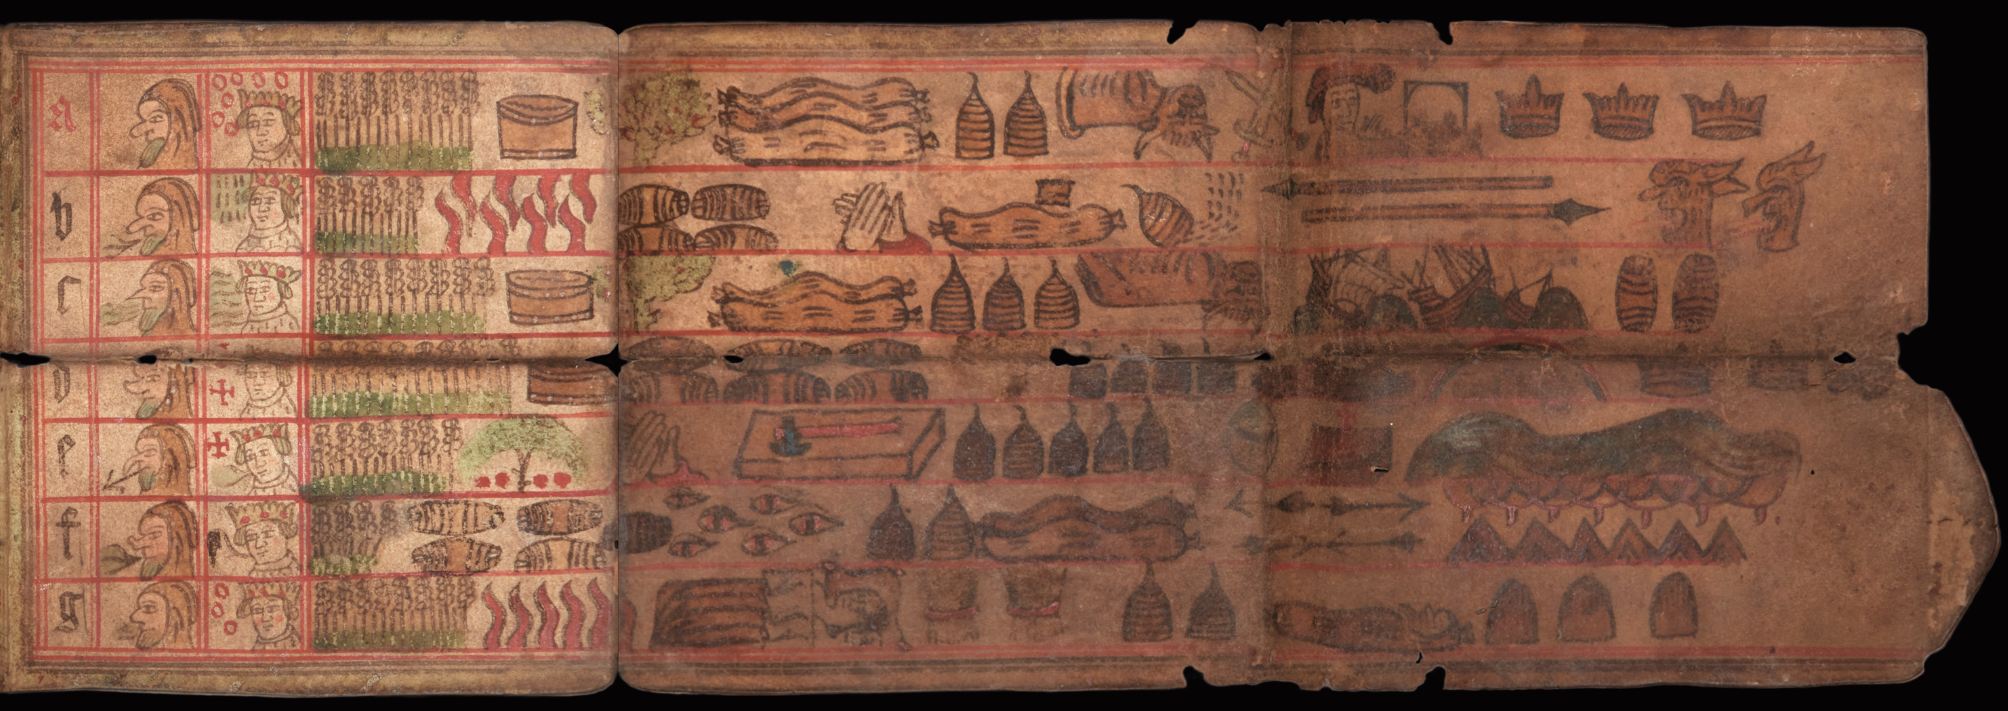 A
b
c
d
e
f
g